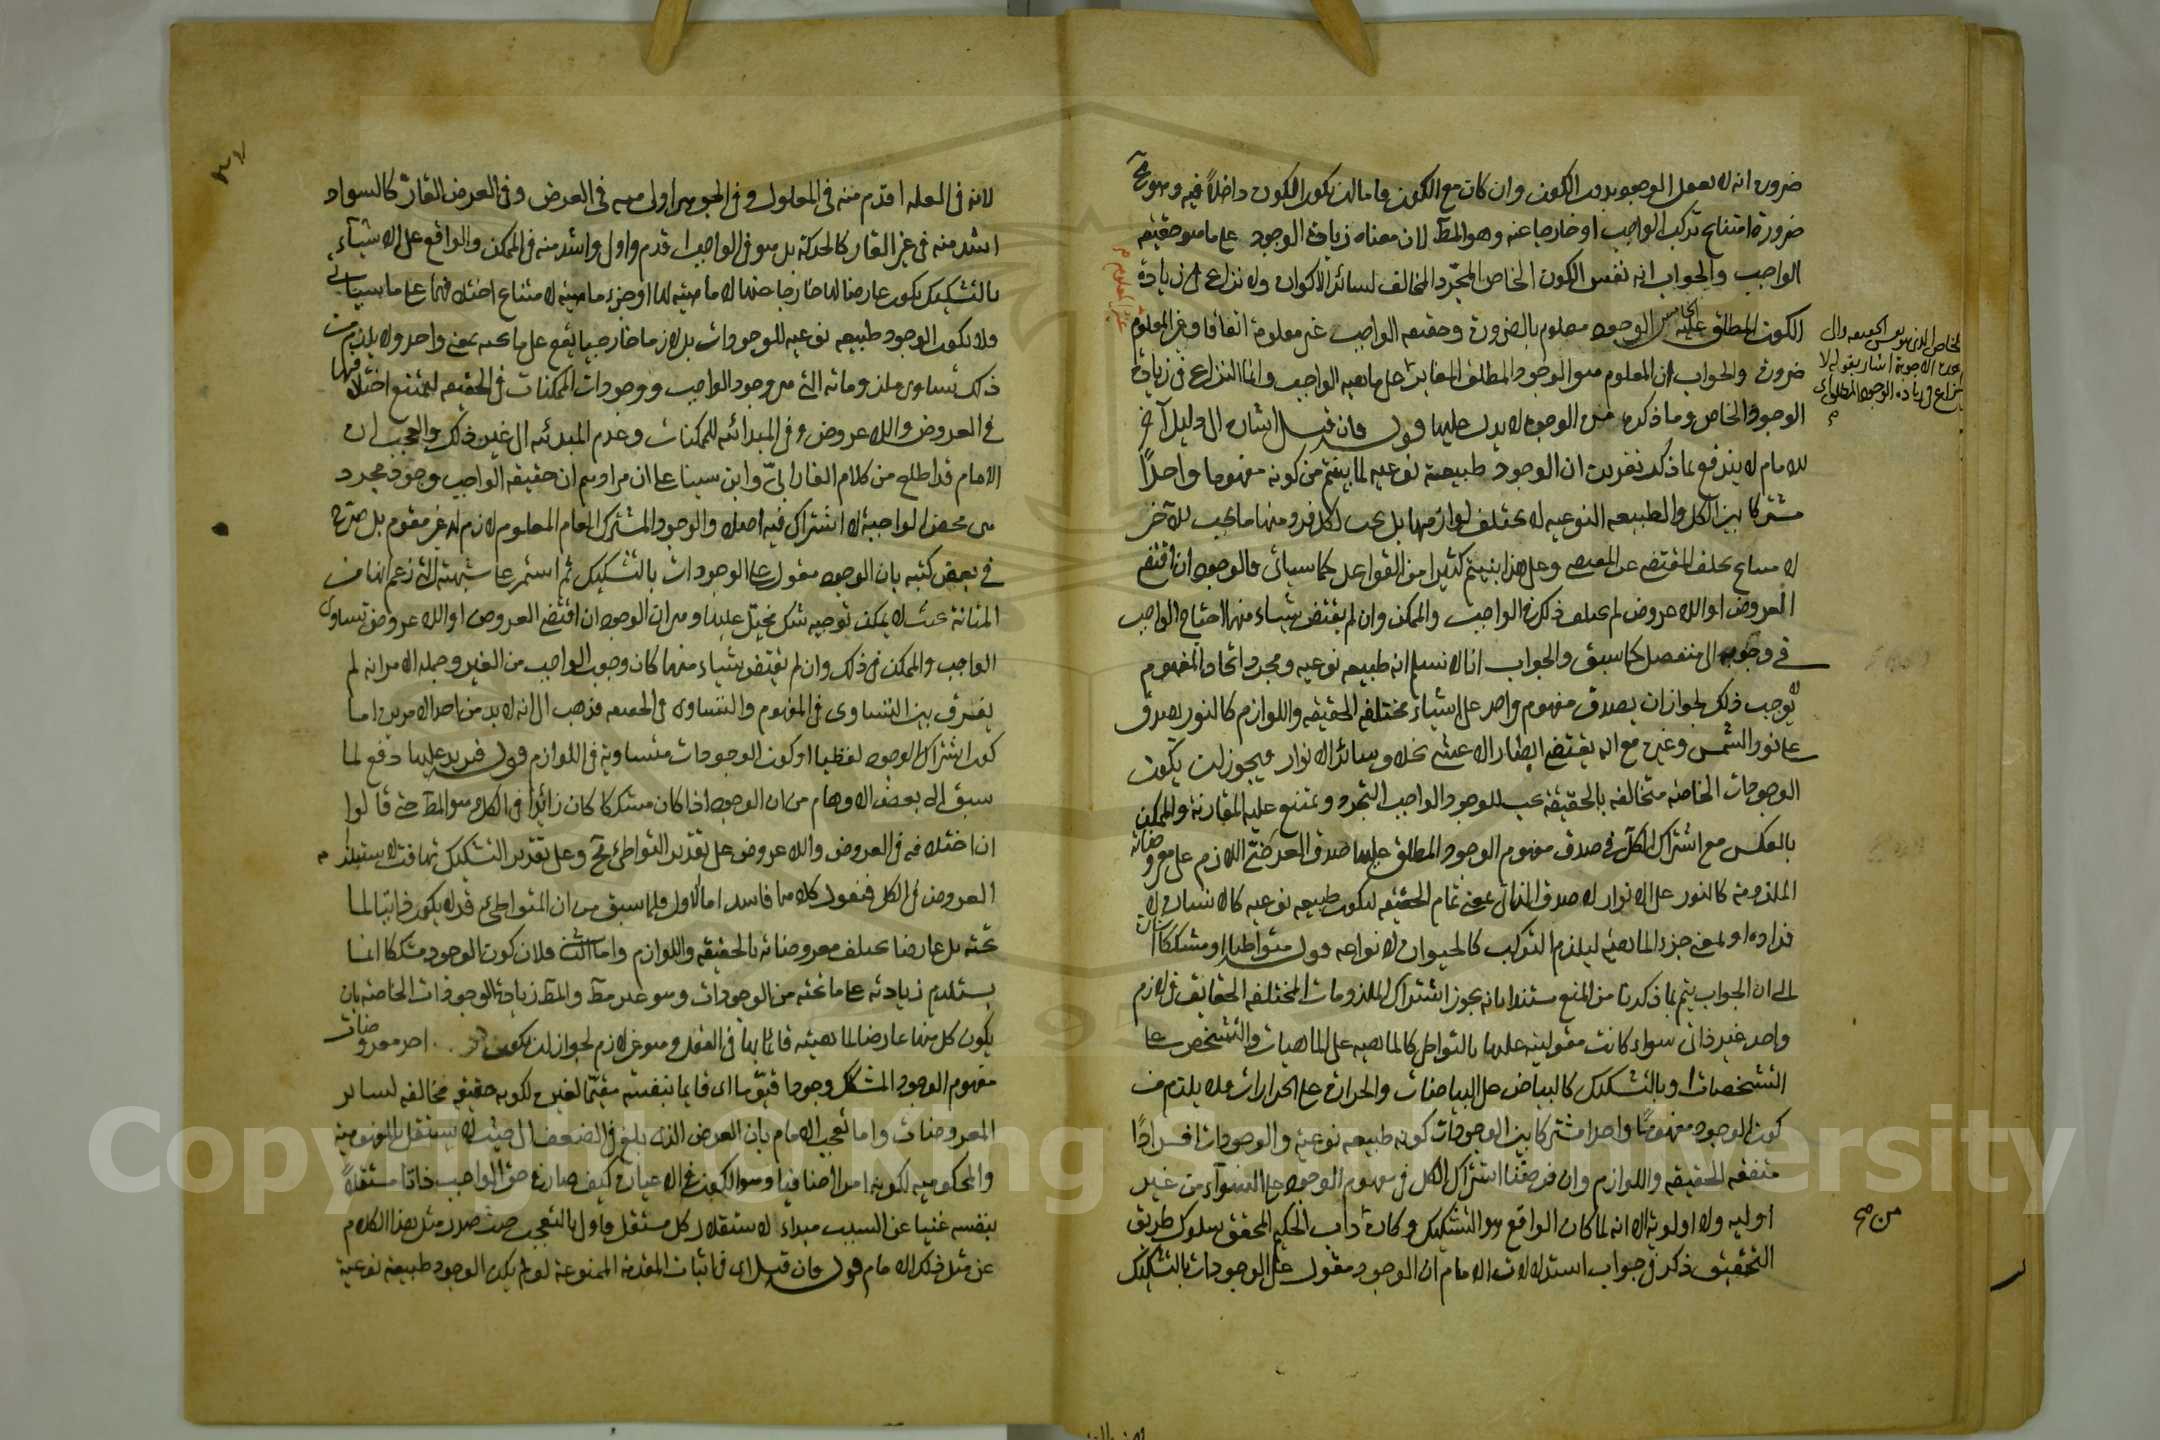 ضرورة انه لا يعقل الوجود بدون الكون وان كان مع الكون فاما ان يكون الكون داخلا فيه وهو مح
ضرورة امتناع تركب الواجب او خارجا عنه وهو المط لان معناه زيادة الوجود على ما هو حقيقة
الواجب والجواب انه نفس الكون الخاص المجرد المخالف لسائر الاكوان ولا نزاع في زيادة
الكون المطلق عليه الخامس الوجود معلوم بالضرورة وحقيقة الواجب غير معلومة اتفاقا وغير المعلوم
ضرورة والجواب ان المعلوم هو الوجود المطلق المغاير على ماهية الواجب وانما النزاع في زيادة
الوجود الخاص وما ذكره من الوجوه لا يدل عليها قوله فان قيل اشارة الى دليل آخر
للامام لا يندفع بما ذكر تقريره ان الوجود طبيعة نوعية لما بينتم من كونه مفهوما واحدا
مشتركا بين الكل والطبيعة النوعية لا تختلف لوازمها بل يجب لكل فرد منها ما يجب للآخر
لامتناع تخلف المقتضى عن المقتضي وعلى هذا بنيتم كثيرا من القواعد كما سيأتي فالوجود ان اقتضى
العروض او اللاعروض لم يختلف ذلك في الواجب والممكن وان لم يقتض شياء منهما احتاج الواجب
في وجوبه الى منفصل كما سبق والجواب انا لا نسلم انه طبيعة نوعية ومجرد اتحاد المفهوم
لا يوجب ذلك لجواز ان يصدق مفهوم واحد على اشياء مختلفة الحقيقة واللوازم كالنور يصدق
على نور الشمس وغيره مع انه يقتضي ابصار الاعشى بخلاف سائر الانوار فيجوز ان يكون
الوجودات الخاصة متخالفة بالحقيقة يجب للوجود الواجب التجرد ويمتنع عليه المقارنة والممكن
بالعكس مع اشتراك الكل في صدق مفهوم الوجود المطلق عليها صدق العرضي اللازم على معروضاته
الملزومة كالنور على الانوار لا صدق الذاتي بمعنى تمام الحقيقة ليكون طبيعة نوعية كالانسان لا
فراده او بمعنى جزء الماهية ليلزم التركب كالحيوان لانواعه قوله متواطيا او مشككا اشارة
الى ان الجواب يتم بما ذكرنا من المنع مستندا بانه يجوز اشتراك الملزومات المختلفة الحقايق في لازم
واحد غير ذاتي سواء كانت مقوليته عليها بالتواطئ كالماهية على الماهيات والتشخص على
التشخصات او بالتشكيك كالبياض على البياضات والحرارة على الحرارات فلا يلزم من
كون الوجود مفهوما واحدا مشتركا بين الوجودات كونه طبيعة نوعية والوجودات افرادا
متفقة الحقيقة واللوازم وان فرضنا اشتراك الكل في مفهوم الوجود على السواء من غير
اولية ولا اولوية الا انه لما كان الواقع هو التشكيك وكان دأب الحكيم المحقق سلوك طريق
التحقيق ذكر في جواب استدلالات الامام ان الوجود مقول على الوجودات بالتشكيك
غير المعلوم
الخاص الذي هو نفس الحقيقة والى
هذه الاجوبة اشار بقوله لا
نزاع في زيادة الوجود المطلق
من صح
لانه في العلة اقدم منه في المعلول وفي الجوهر اولى منه في العرض وفي العرض القار كالسواد
اشد منه في غير القار كالحركة بل هو في الواجب اقدم واولى واشد منه في الممكن والواقع على الاشياء
بالتشكيك يكون عارضا لها خارجا عنها لا ماهية لها او جزء ماهية لامتناع اختلافهما على ما سياتي
ولا يكون الوجود طبيعة نوعية للموجودات بل لازما خارجيا يقع على ما تحته بمعنى واحد ولا يلزم من
ذلك تساوي ملزوماته التي هي وجود الواجب ووجودات الممكنات في الحقيقة ليمتنع اختلافها
في العروض واللاعروض وفي المبدائية للممكنات وعدم المبدئية الى غير ذلك والعجب ان
الامام قد اطلع من كلام الفارابي وابن سينا على ان مرادهم ان حقيقة الواجب وجود مجرد
هي محض الواجبية لا اشتراك فيه اصلا والوجود المشترك العام المعلوم لازم له غير مقوم بل صرح
في بعض كتبه بان الوجود مقول على الوجودات بالتشكيك ثم استمر على شبهته التي زعم انها من
المتانة بحيث لا يمكن توجيه شك مخيل عليها وهي ان الوجود ان اقتضى العروض او اللاعروض تساوى
الواجب والممكن في ذلك وان لم يقتض شياء منهما كان وجوب الواجب من الغير وجملة الامر انه لم
يفرق بين التساوي في المفهوم والتساوي في الحقيقة فذهب الى انه لا بد من احد الامرين اما
كون اشتراك الوجود لفظيا او كون الوجودات متساوية في اللوازم قوله فيريد عليها دفع لما
سبق اليه بعض الاوهام من ان الوجود اذا كان مشككا كان زائدا في الكل وهو المط حتى قالوا
ان اختلافه في العروض واللاعروض على تقدير التواطئ مح وعلى تقدير التشكيك تهافت لاستلزامه
العروض في الكل فنقول كلاهما فاسد اما الاول فلما سبق من ان المتواطئ قد لا يكون ذاتيا لما
تحته بل عارضا تختلف معروضاته بالحقيقة واللوازم واما الثاني فلان كون الوجود مشككا انما
يستلزم زيادته على ما تحته من الوجودات وهو غير مط والمط زيادة الوجودات الخاصة بان
يكون كل منها عارضا لماهيته قائما بها في العقل وهو غير لازم لجواز ان يكون احد معروضات
مفهوم الوجود المشكك وجودا قيوما اي قايما بنفسه مقيما لغيره لكونه حقيقة مخالفة لسائر
المعروضات واما تعجب الامام بان العرض الذي بلغ في الضعف الى حيث لا يستقل بالمفهومية
والمحكومية لكونه امرا اضافيا وهو الكون في الاعيان كيف صار في حق الواجب ذاتا مستقلا
بنفسه غنيا عن السبب مبداء لاستقلال كل مستقل فاولى بالتعجب حيث صدر مثل هذا الكلام
عن مثل ذلك الامام قوله فان قيل اي في اثبات المقدمة الممنوعة لو لم يكن الوجود طبيعة نوعية
Copyright © King Saud University